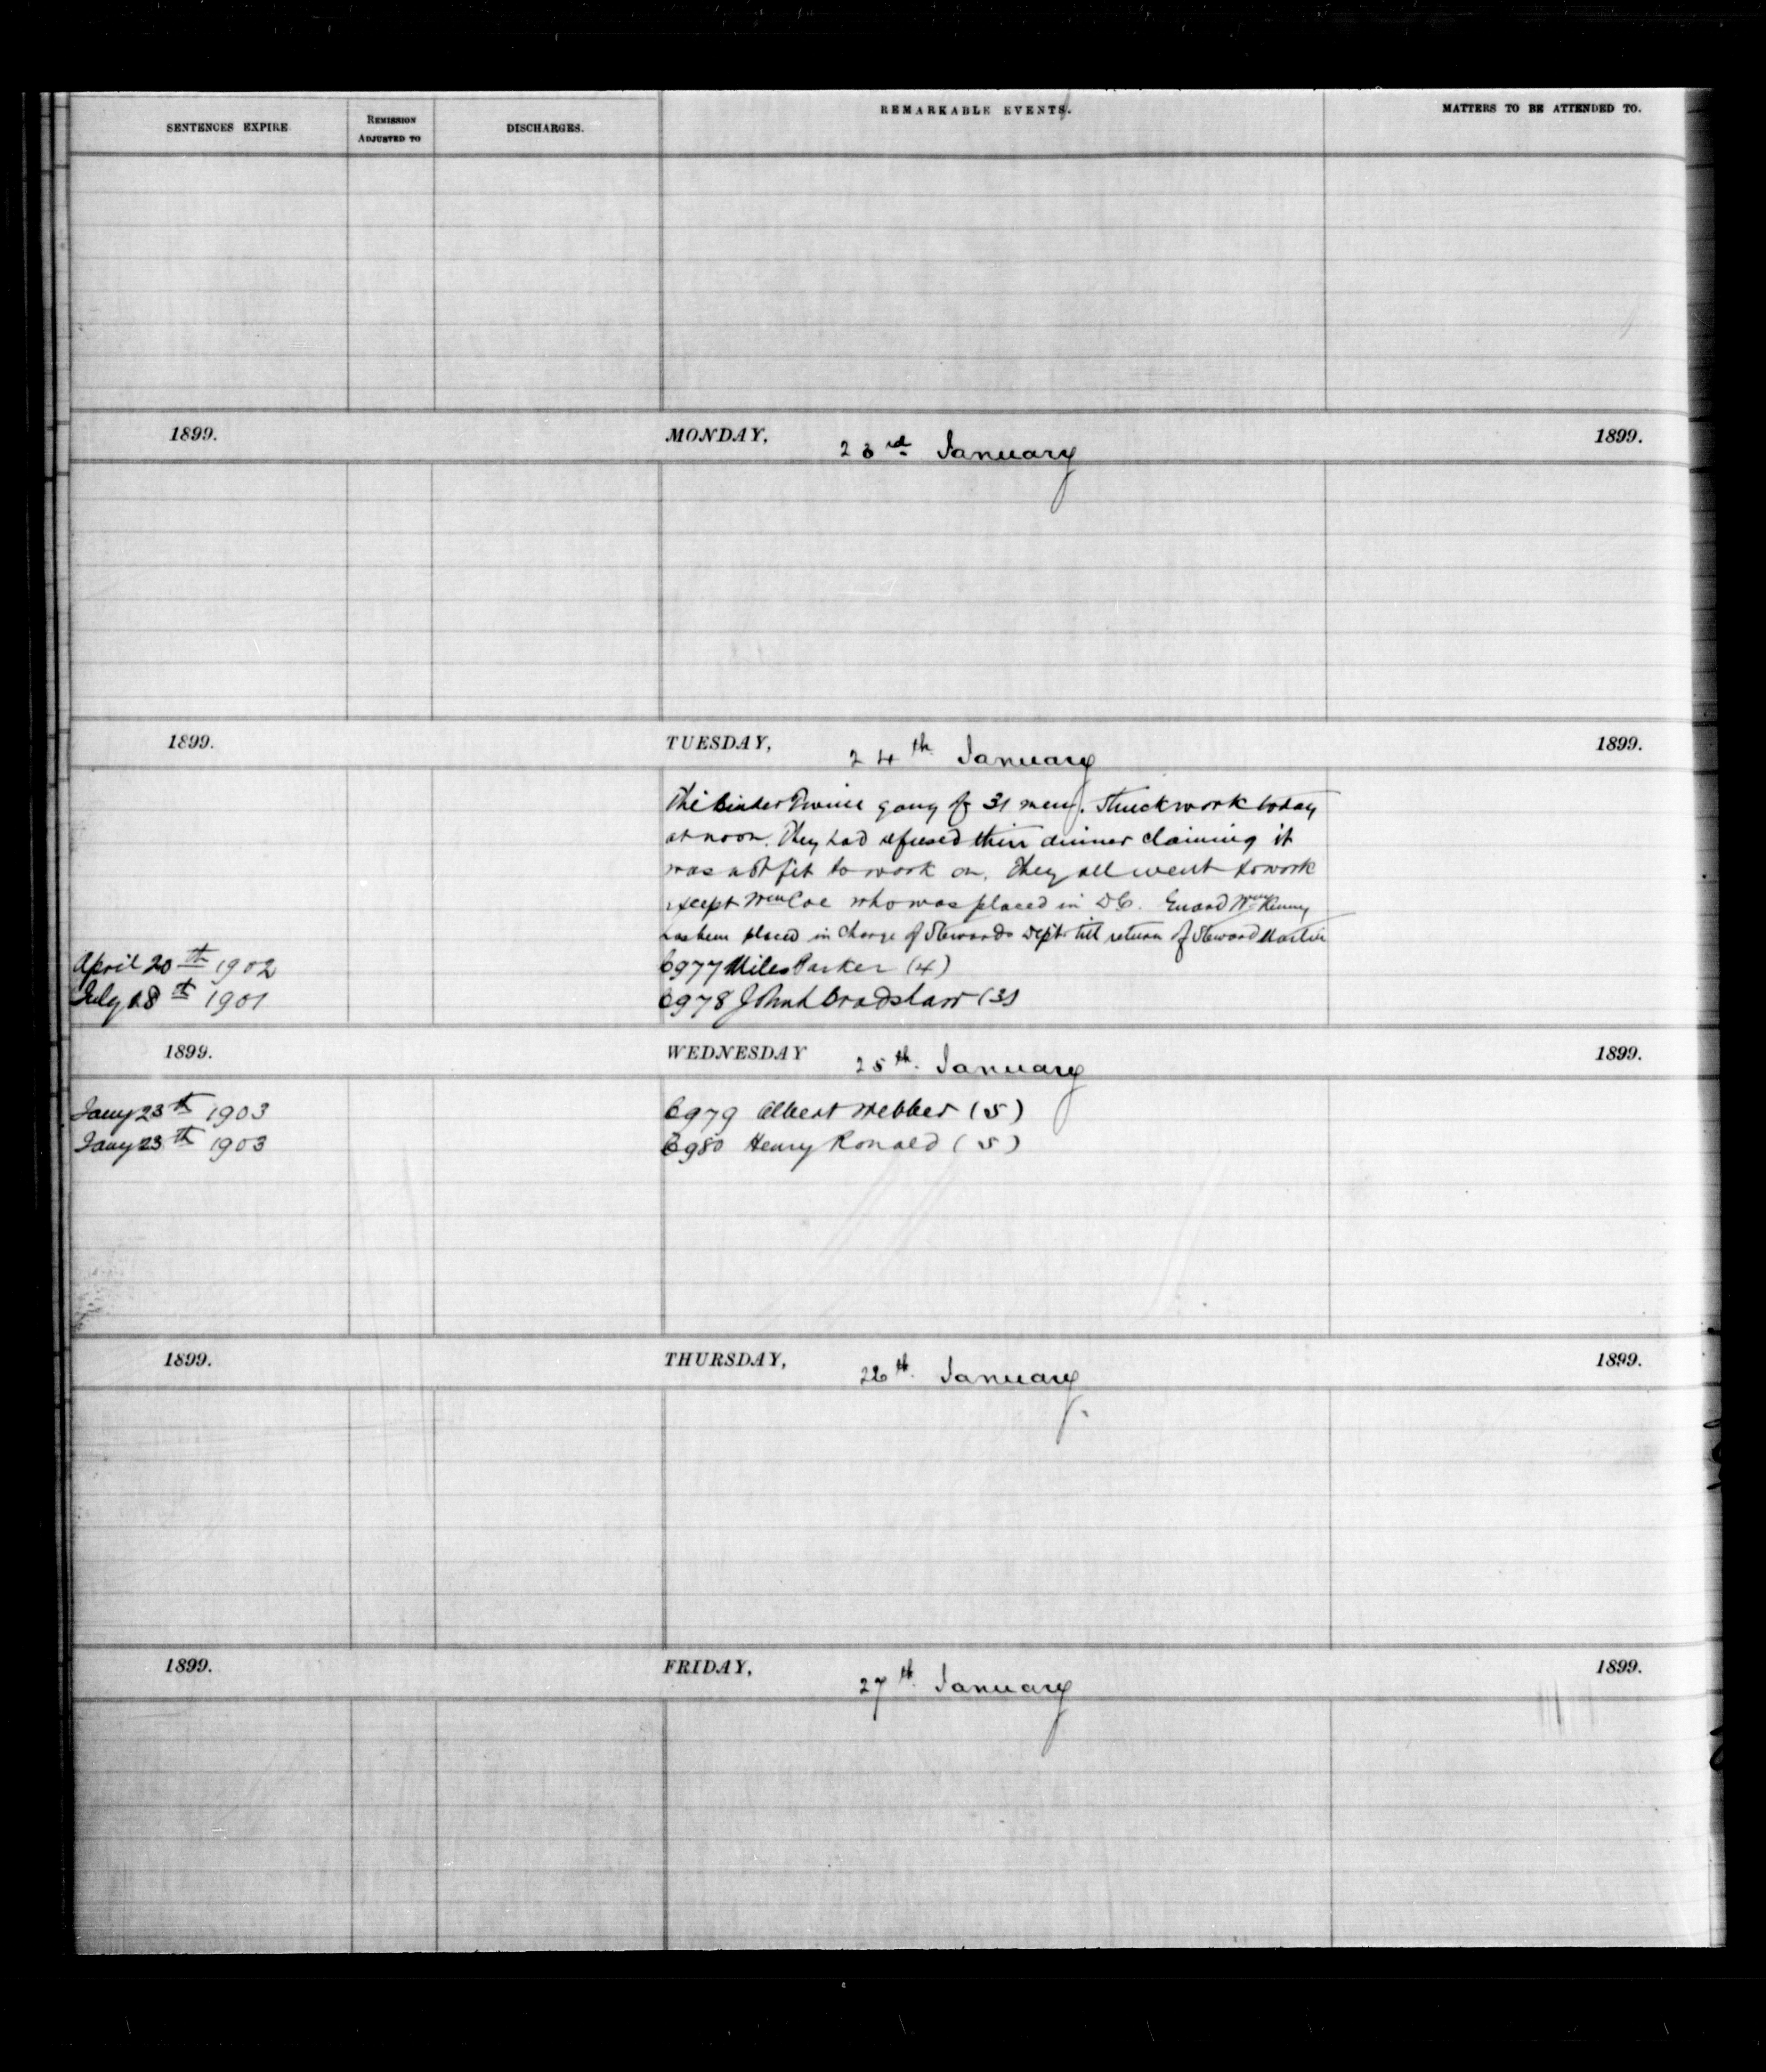 SENTENCES EXPIRE REMISSION ADJUSTED TO DISCHARGES. REMARKABLE EVENTS. MATTERS TO BE ATTENDED TO.
1899. MONDAY, 23rd January 1899.
1899. TUESDAY, 24th January 1899.
The Binder Twine gang of 31 men, struck work today
at noon. They had refused their dinner claiming it
was not fit to work on. They all went to work
except Wm Coe who was placed in D.C. Guard Wm Kenny
has been placed in charge of Stewards Dept till return of Steward Martin
April 20th 1902 C977 Miles Parker (4)
July 18th 1901 C978 John Bradshaw (3)
1899. WEDNESDAY 25th January 1899.
Jany 23th 1903 C979 Albert Webber (5)
Jany 23th 1903 C980 Henry Ronald (5)
1899. THURSDAY, 26th January 1899.
1899. FRIDAY, 27th January 1899.